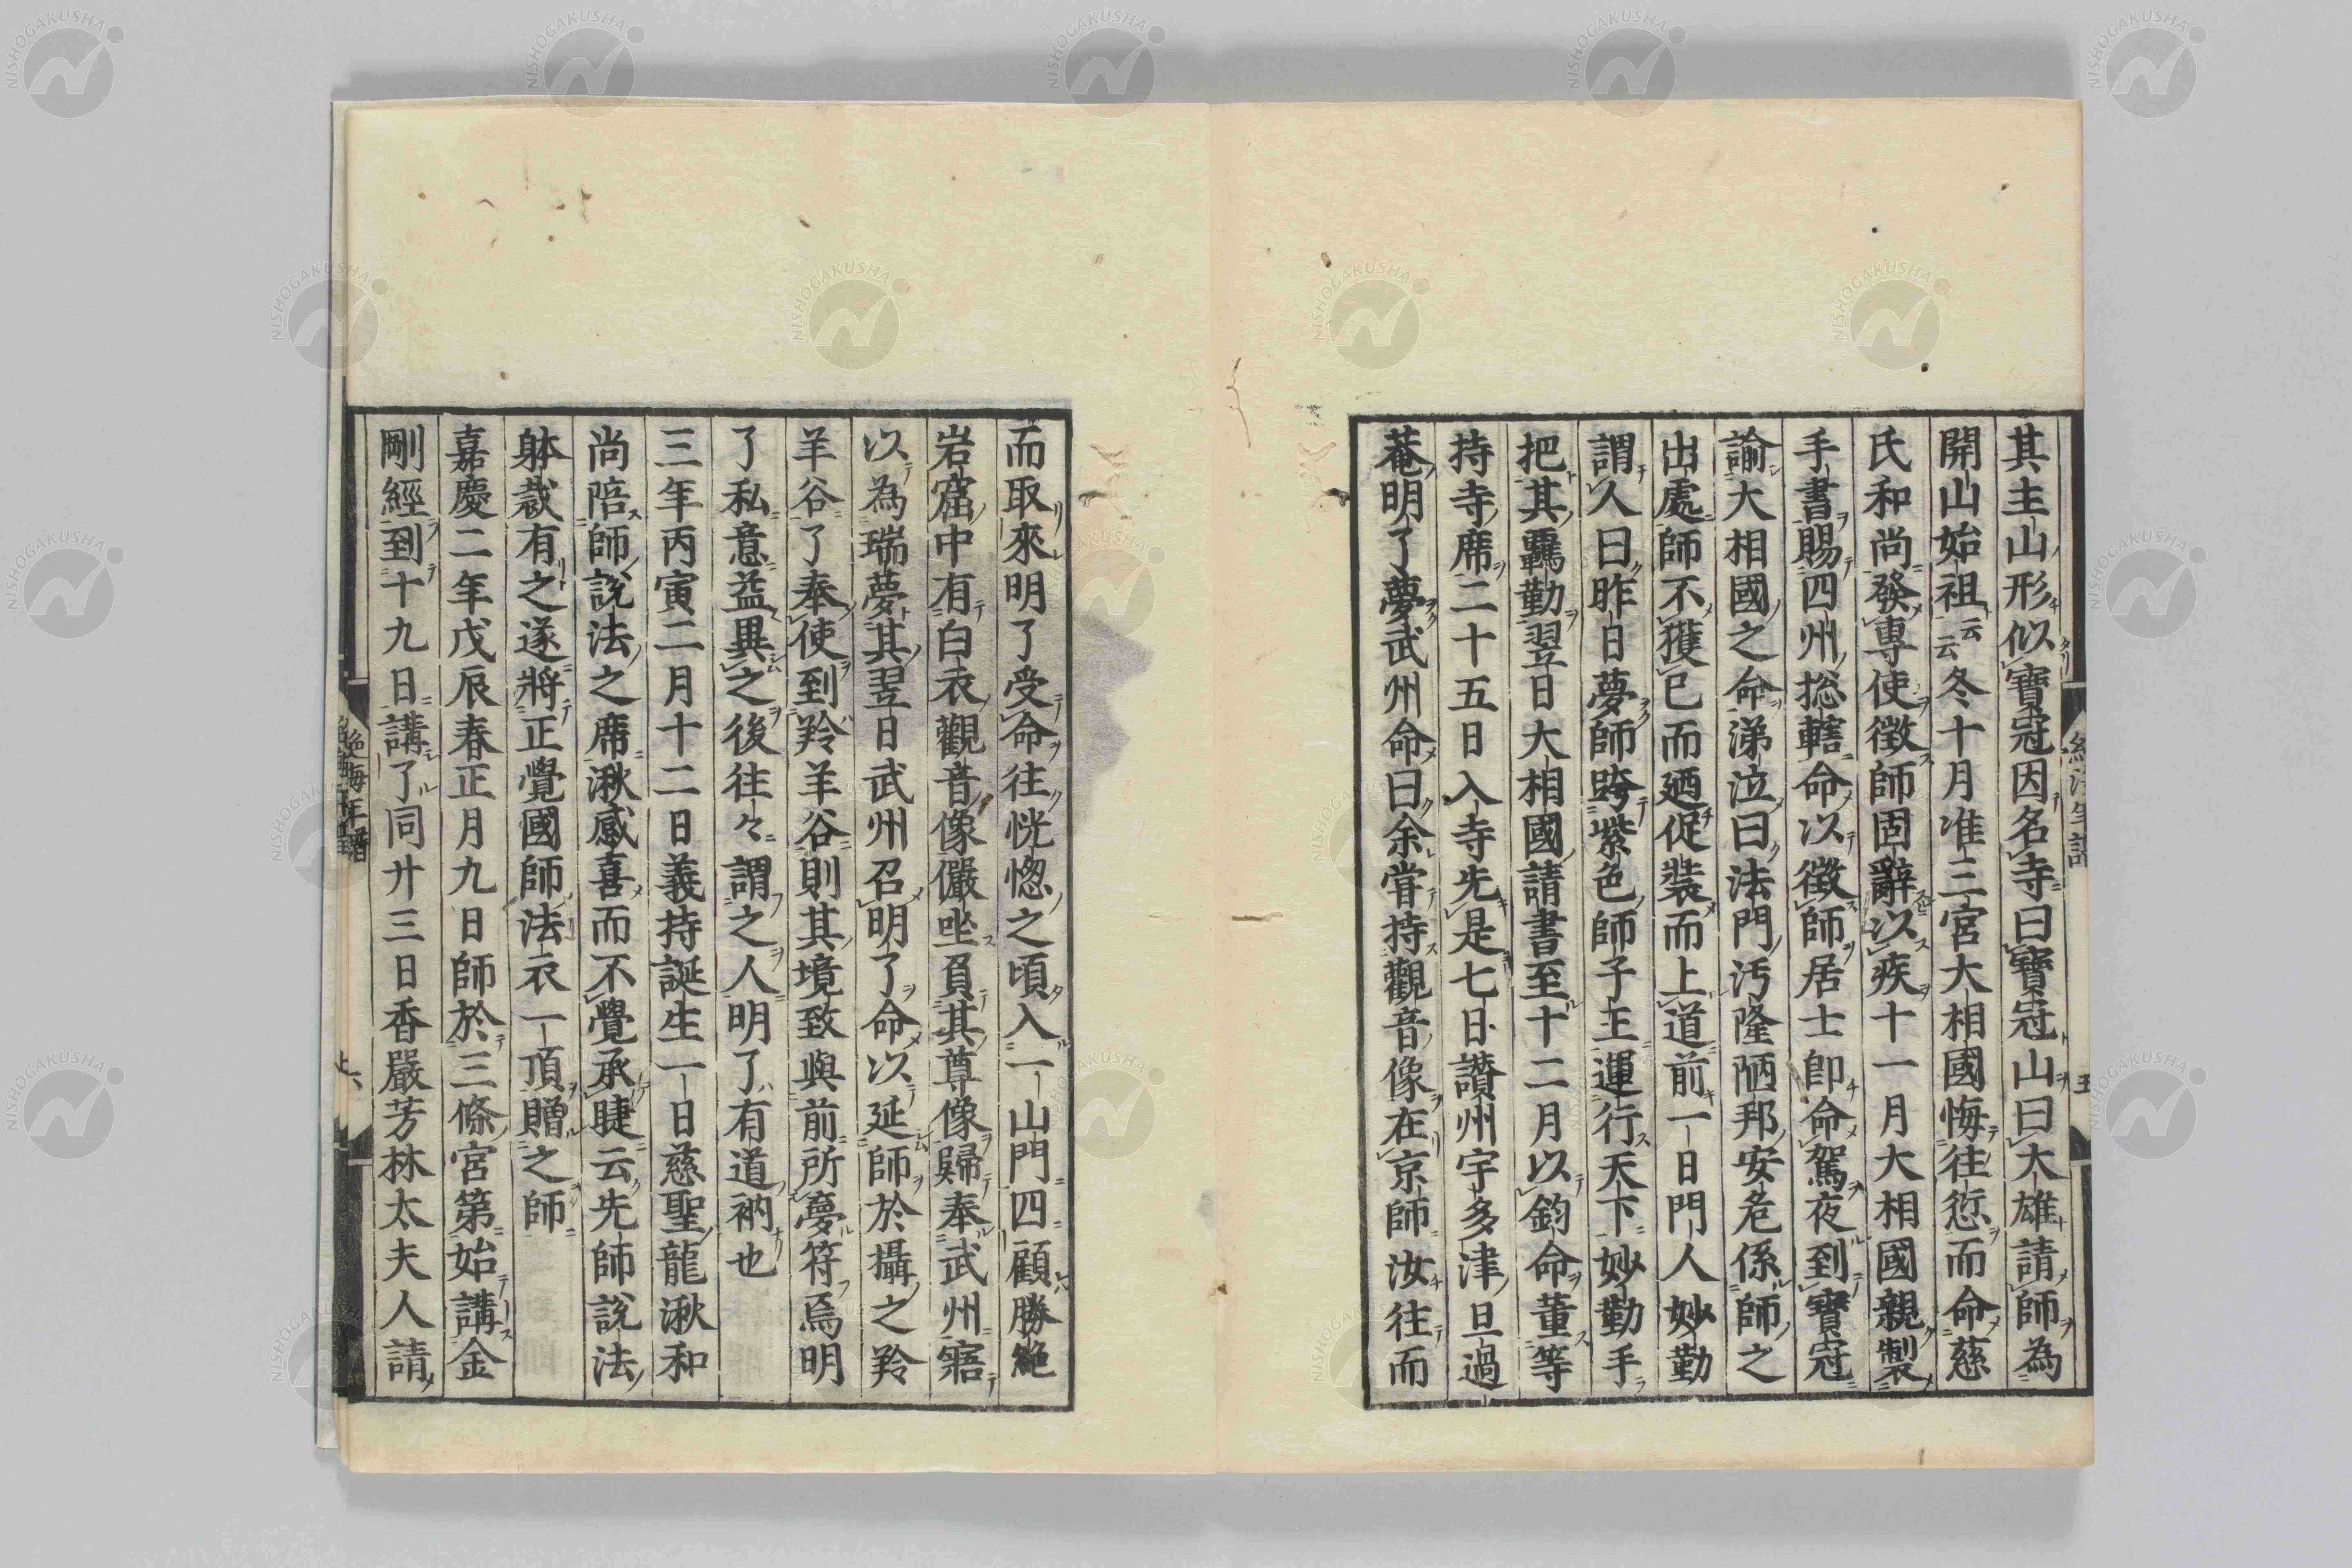 其主山形似寶冠因名寺曰寶冠山曰大雄請師為
開山始祖云云冬十月准三宮大相國悔往愆而命慈
氏和尚發專使徵師固辭以疾十一月大相國親製
手書賜四州揔轄命以徵師居士卽命駕夜到寶冠
諭大相國之命涕泣曰法門汚隆陋邦安危係師之
出處師不獲已而迺促裝而上道前一日門人妙勤
謂人曰昨日夢師跨紫色師子王運行天下妙勤手
把其羈勒翌日大相國請書至十二月以鈞命董等
持寺席二十五日入寺先是七日讚州宇多津旦過
菴明了夢武州命曰余甞持觀音像在京師汝往而
而取來明了受命往恍惚之頃入一山門四顧勝絶
岩窟中有白衣觀音像儼坐負其尊像歸奉武州寤
以為瑞夢其翌日武州召明了命以延師於攝之羚
羊谷了奉使到羚羊谷則其境致與前所夢符焉明
了私意益異之後往々謂之人明了有道衲也
三年丙寅二月十二日義持誕生一日慈聖龍湫和
尚陪師說法之席湫感喜而不覺承睫云先師說法
躰裁有之遂將正覺國師法衣一頂贈之師
嘉慶二年戊辰春正月九日師於三條宮第始講金
剛經到十九日講了同廾三日香嚴芳林太夫人請
絶海年譜
NISHOGAKUSHA